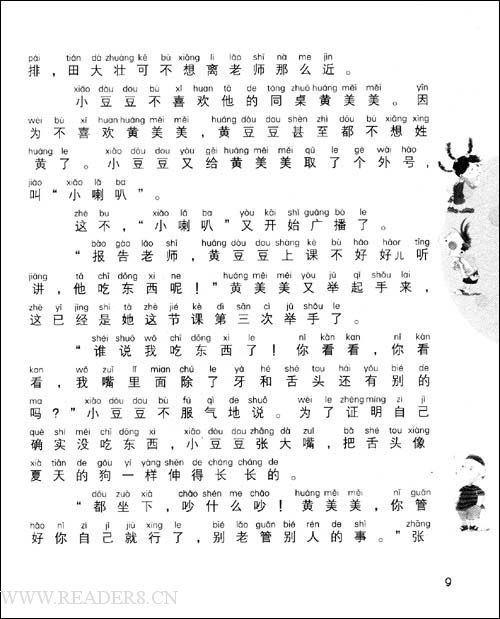 pái tián dà zhuàng kě bù xiǎng lí lǎo shī nà me jìn
排，田大壮可不想离老师那么近。
xiǎo dòu dou bù xǐ huan tā de tóng zhuō huáng měi měi yīn
小豆豆不喜欢他的同桌黄美美。因
wèi bù xǐ huan huáng měi měi huáng dòu dou shèn zhì dōu bù xiǎng xìng
为不喜欢黄美美，黄豆豆甚至都不想姓
huáng le xiǎo dòu dou yòu gěi huáng měi měi qǔ le gè wài hào
黄了。小豆豆又给黄美美取了个外号，
jiào xiǎo lǎ ba
叫“小喇叭”。
zhè bu xiǎo lǎ ba yòu kāi shǐ guǎng bō le
这不，“小喇叭”又开始广播了。
bào gào lǎo shī huáng dòu dou shàng kè bù hǎo hāor tīng
“报告老师，黄豆豆上课不好好儿听
jiǎng tā chī dōng xi ne huáng měi měi yòu jǔ qǐ shǒu lai
讲，他吃东西呢！”黄美美又举起手来，
zhè yǐ jing shì tā zhè jié kè dì sān cì jǔ shǒu le
这已经是她这节课第三次举手了。
shéi shuō wǒ chī dōng xi le nǐ kàn kan nǐ kàn
“谁说我吃东西了！你看看，你看
kan wǒ zuǐ lǐ mian chú le yá hé shé tou hái yǒu bié de
看，我嘴里面除了牙和舌头还有别的
ma xiǎo dòu dou bù fú qì de shuō wèi le zhèng míng zì jǐ
吗？”小豆豆不服气地说。为了证明自己
què shí méi chī dōng xi xiǎo dòu dou zhāng dà zuǐ bǎ shé tou xiàng
确实没吃东西，小豆豆张大嘴，把舌头像
xià tiān de gǒu yí yàng shēn de cháng cháng de
夏天的狗一样伸得长长的。
dōu zuò xià chǎo shén me chǎo huáng měi měi nǐ guǎn
“都坐下，吵什么吵！黄美美，你管
hǎo nǐ zì jǐ jiù xíng le bié lǎo guǎn bié rén de shì zhāng
好你自己就行了，别老管别人的事。”张
9
WWW.READERS.CN